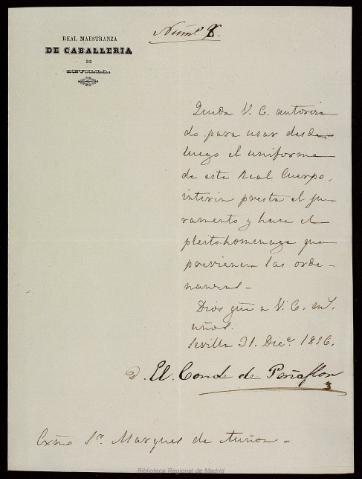 REAL MAESTRANZA
DE CABALLERIA
DE
SEVILLA.
Núm. 8.
Queda V. E. autoriza
do para usar desde
luego el uniforme
de este Real Cuerpo,
interin presta el ju-
ramento y hace el
pleito homenage que
previenen las orde-
nanzas.
Dios gũe a V. E. m.s
años.
Sevilla 31. Dic.e
El Conde de Peñaflor
Exc̃mo Sr. Marques de
Biblioteca Regional de Madrid